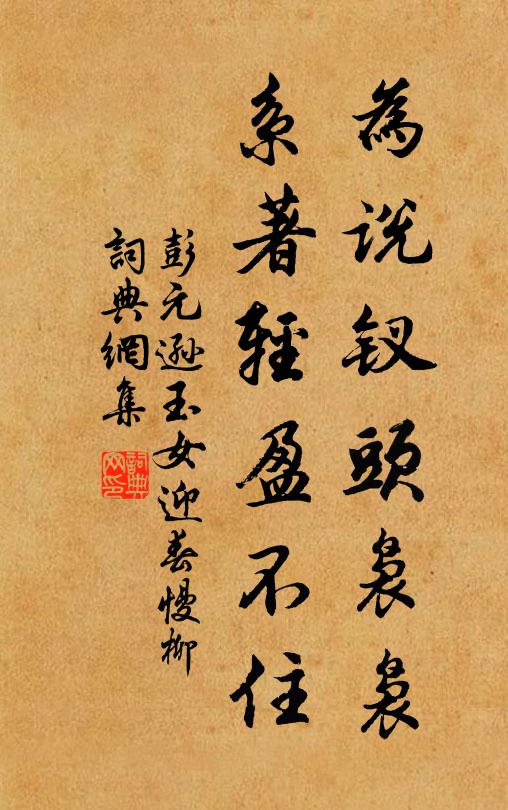 為説釵頭裊裊
系著輕盈不住
彭元遜玉女迎春慢柳
詞典網集
詞典網印